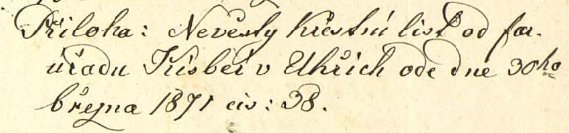 Příloha: Nevěsty křestní list od far.
úřadu Kisbér v Uhřích ode dne 30ho
března 1871 čis: 38.